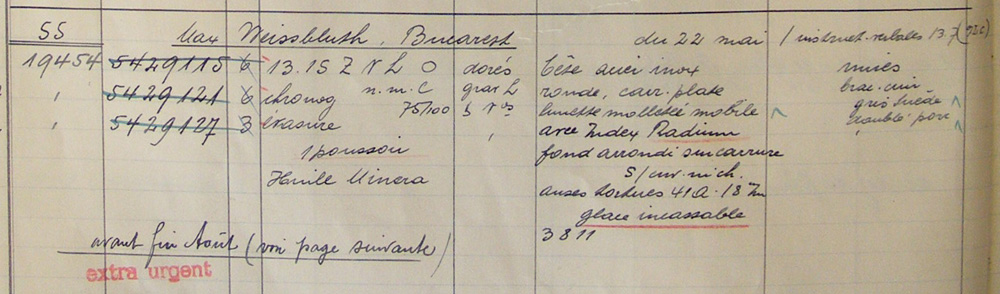 55 Max Weissbluth, Bucarest du 22 mai / instruct. verbales 13.7
19454 5429115 6 13.15 Z N L O dorés tête acier inox mises
" 5429121 6 chronog n.m.C grav L ronde, carr. plate brac. cuir
" 5429127 3 érasure 75/100 lunette molletée mobile gris suède
" avec Index Radium double porc "
1 poussoir fond arrondi sur carrure
Huile Minera s/cuv. nich.
anses tordues 41A - 18 m
glace incassable
3811
avant fin Août (voir page suivante)
extra urgent